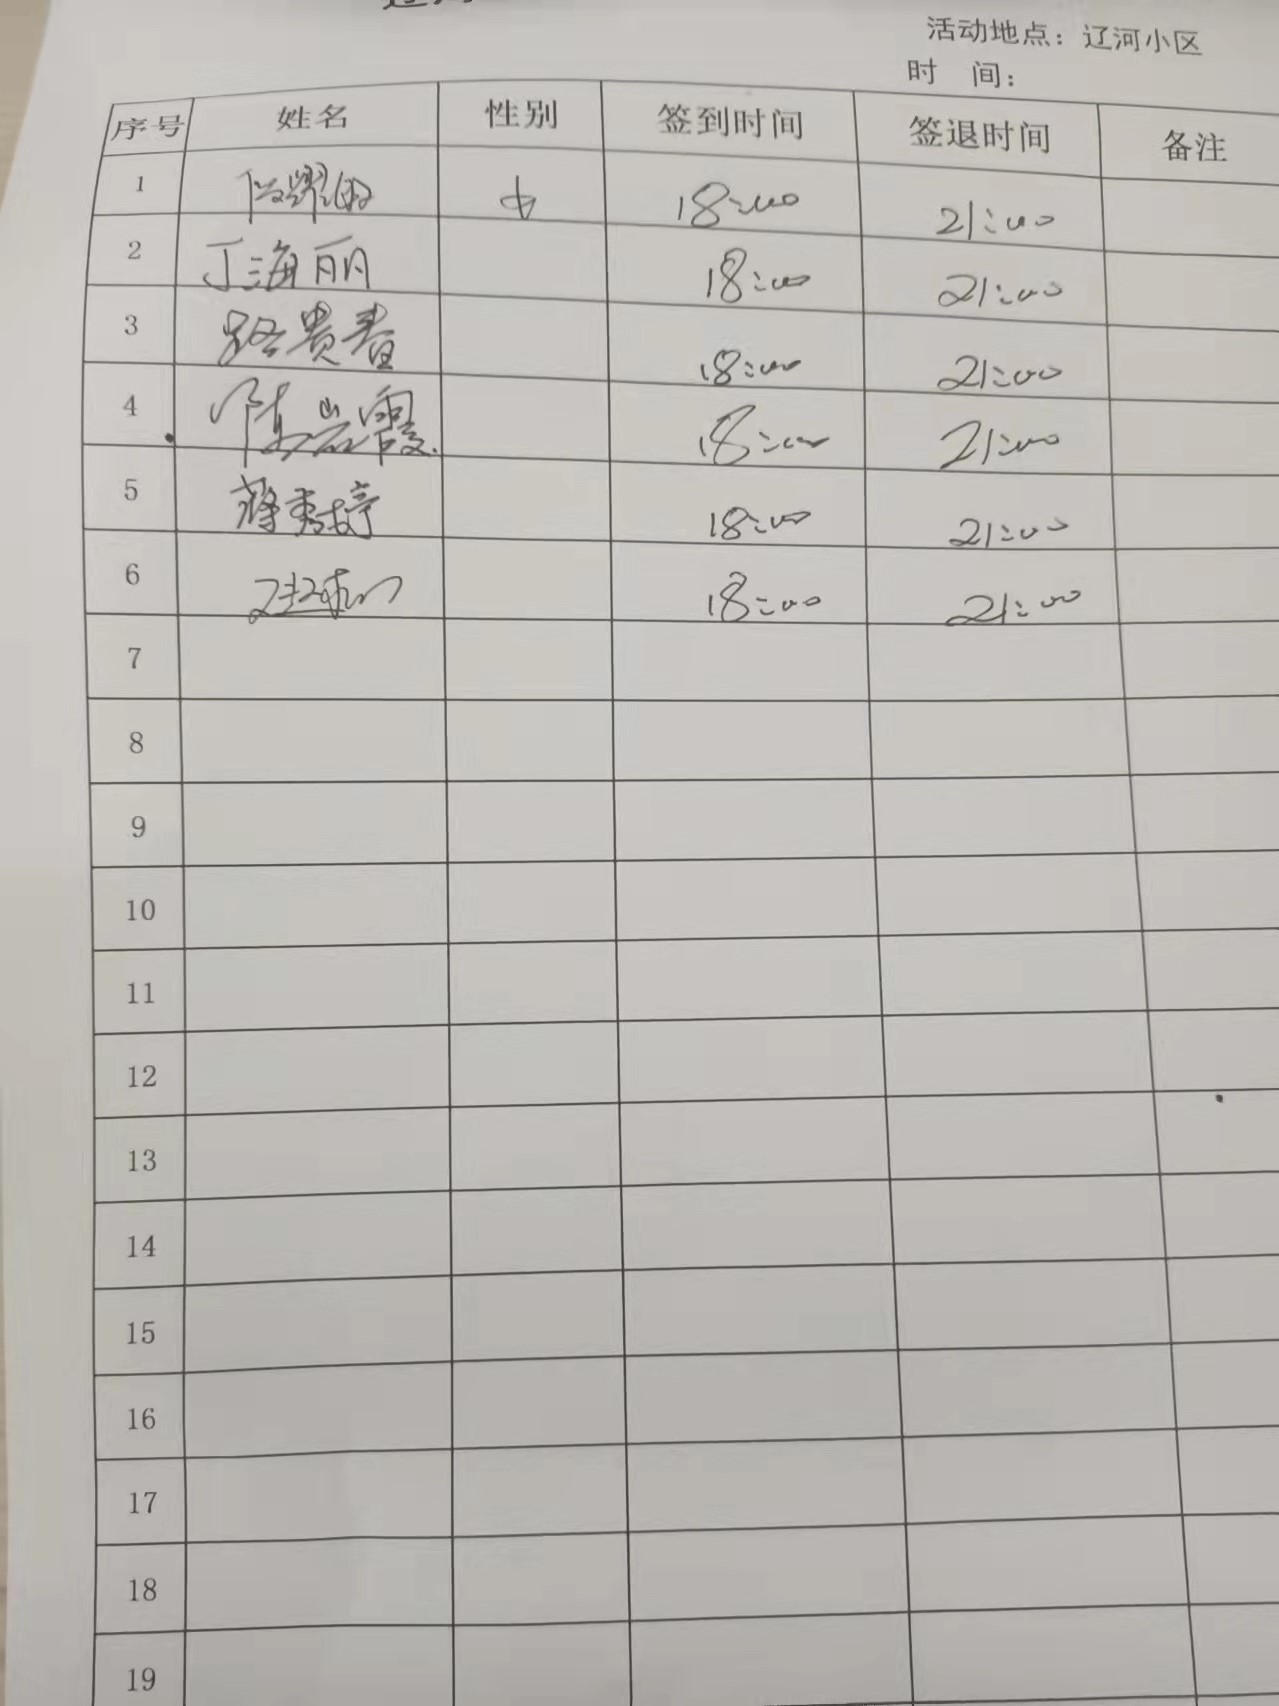 活动地点：辽河小区
时 间：
序号 姓名 性别 签到时间 签退时间 备注
1 18:00 21:00
2 丁海丽 18:00 21:00
3 路贵春 18:00 21:00
4 陈岩霞 18:00 21:00
5 蒋秀婷 18:00 21:00
6 18:00 21:00
7
8
9
10
11
12
13
14
15
16
17
18
19